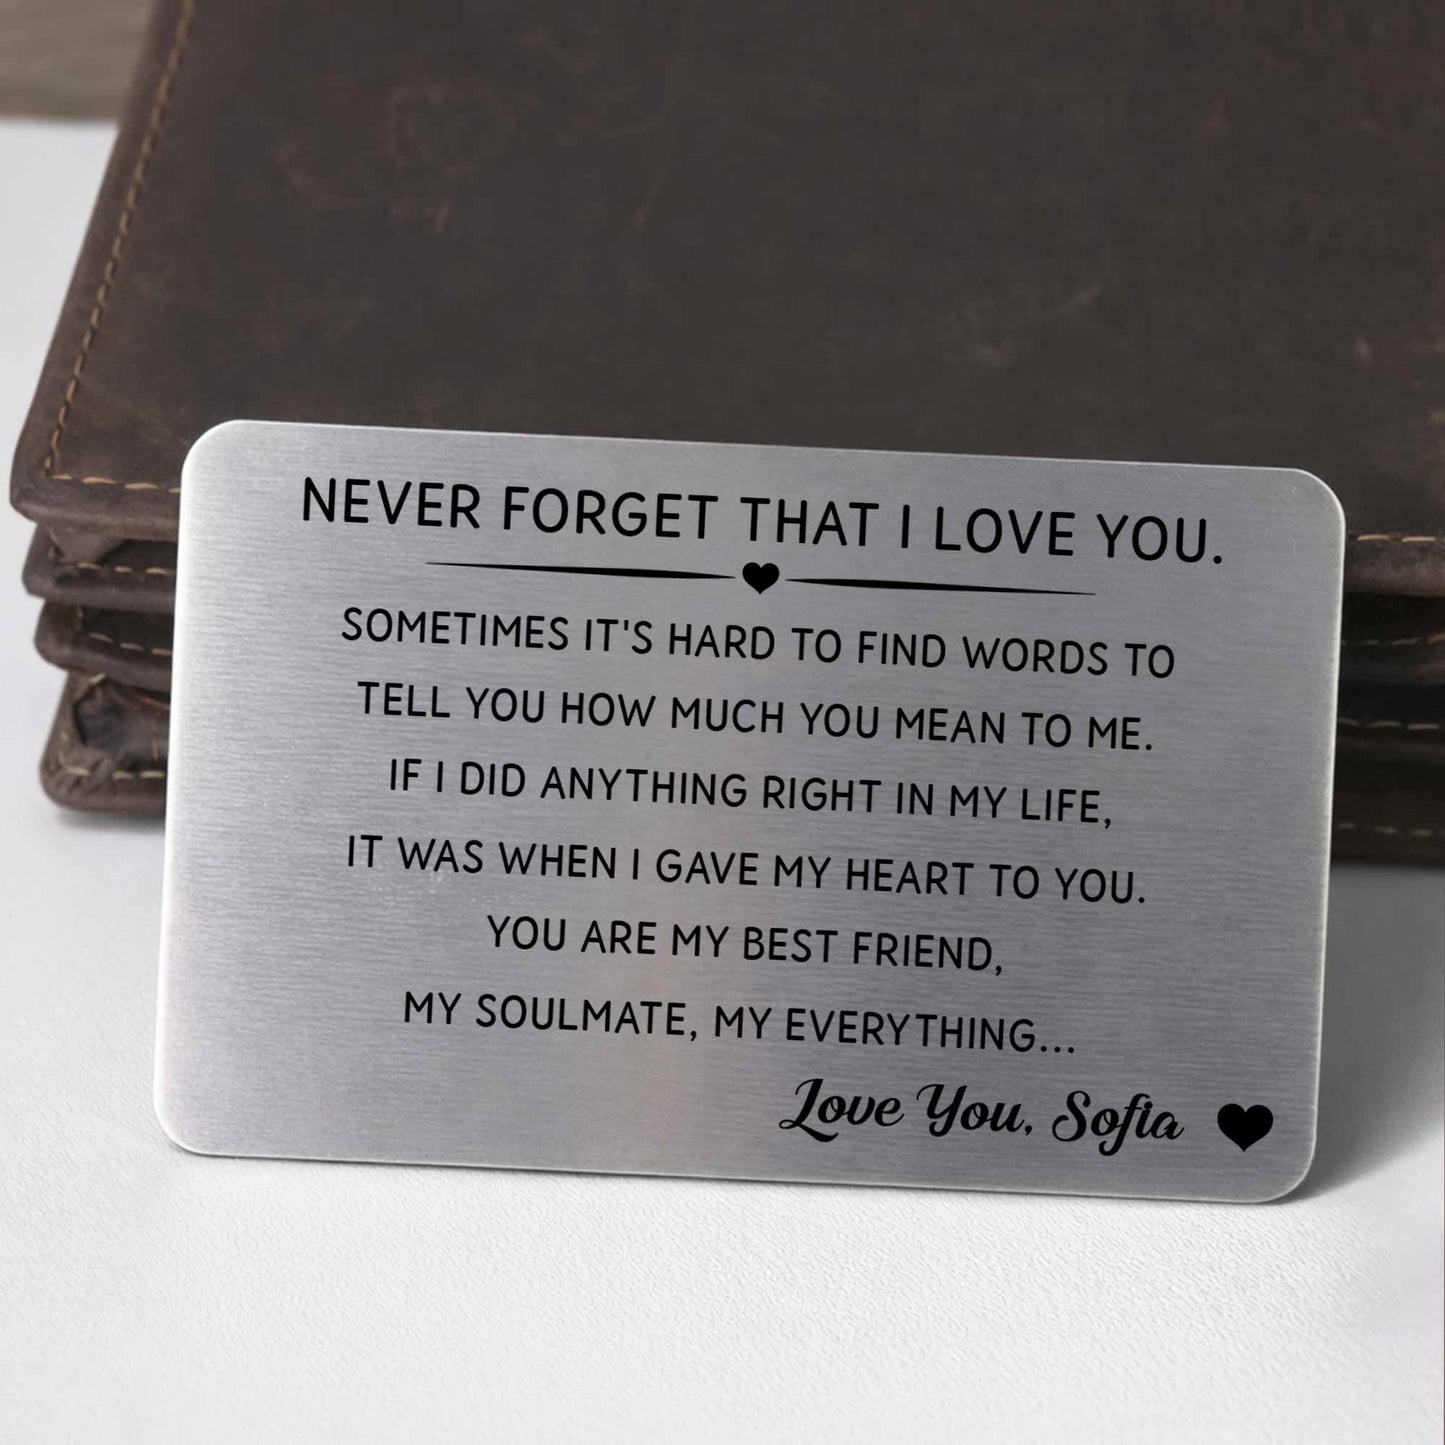 NEVER FORGET THAT I LOVE YOU.
SOMETIMES IT'S HARD TO FIND WORDS TO
TELL YOU HOW MUCH YOU MEAN TO ME.
IF I DID ANYTHING RIGHT IN MY LIFE,
IT WAS WHEN I GAVE MY HEART TO YOU.
YOU ARE MY BEST FRIEND,
MY SOULMATE, MY EVERYTHING...
Love You, Sofia